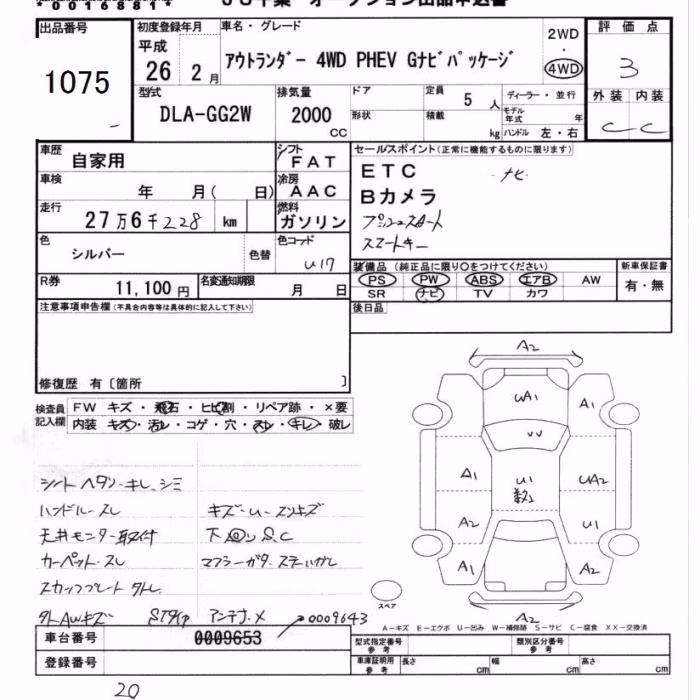 *00168811*
出品番号 初度登録年月 車名・グレード 2WD 評価点
1075 平成 26 2月 アウトランダー 4WD PHEV Gナビパッケージ ・ 4WD 3
型式 排気量 ドア 定員 5人 ディーラー・並行 外装 内装
DLA-GG2W 2000CC 形状 積載 kg モデル年式 年 ハンドル 左・右 C C
車歴 自家用 シフト FAT セールスポイント(正常に機能するものに限ります)
車検 年 月( 日) 冷房 AAC ETC ・ナビ
走行 27万6千228 km 燃料 ガソリン Bカメラ
プッシュスタート
色 シルバー 色替 色コード U17 スマートキー
R券 11,100円 名変通知期限 月 日 装備品(純正品に限り○をつけてください) 新車保証書
PS PW ABS エアB AW 有・無
SR ナビ TV カワ
注意事項申告欄(不具合内容等は具体的に記入して下さい) 後日品
修復歴 有〔箇所 〕
検査員記入欄 FW キズ・飛石・ヒビ割・リペア跡・×要
内装 キズ・汚レ・コゲ・穴・スレ・キレ・破レ
A2
UA1 A1
VV
A1 U1 UA2
A2 U1
A1 A2
A2
スペア
シート ヘタリ・キレ、シミ
ハンドル・スレ キズ・U・スリキズ
天井モニター取付 下 S.C
カーペット・スレ マフラーガタ・
スカッフプレート
AWキズ アンテナ・× 0009643
A-キズ E-エクボ U-凹み W-補修跡 S-サビ C-腐食 XX-交換済
車台番号 0009653 型式指定番号参考 類別区分番号参考
登録番号 車庫証明用参考 長さ cm 幅 cm 高さ cm
20